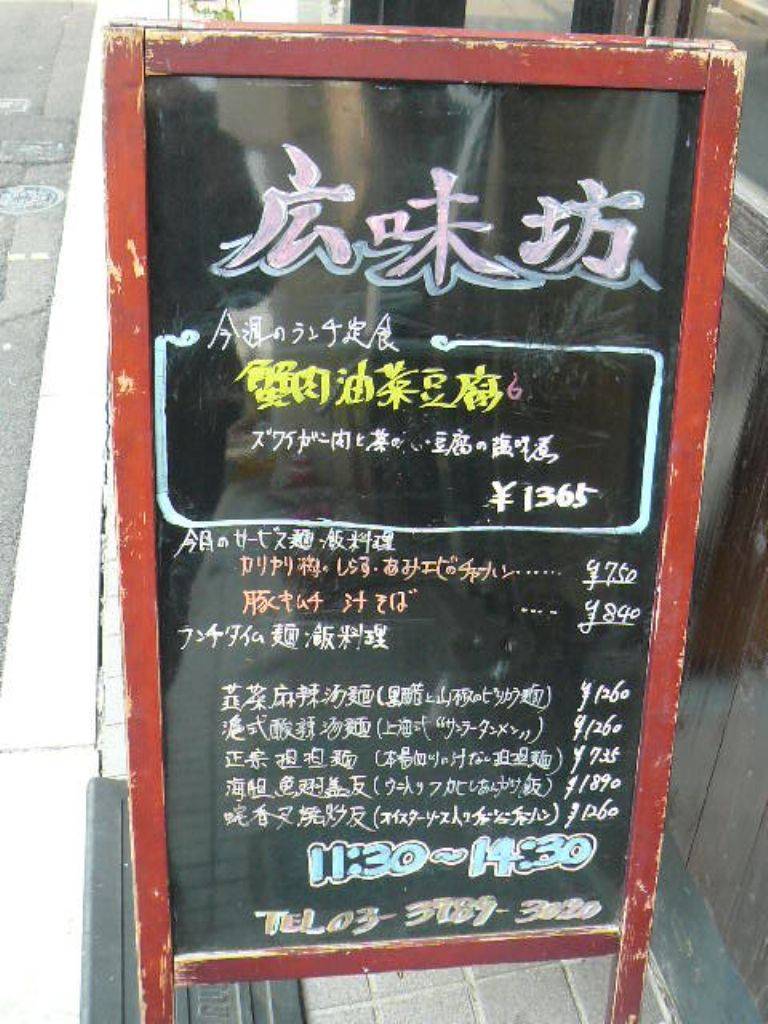 広味坊
今週のランチ定食
蟹肉油菜豆腐
ズワイガニ肉と菜のい豆腐の塩味煮
¥1365
今月のサービス麺・飯料理
カリカリ梅・しらす・あみエビのチャーハン…… ¥750
豚キムチ 汁そば …. ¥840
ランチタイム 麺・飯料理
韮菜麻辣湯麺(黒醋と山椒のピリカラ麺) ¥1260
滬式酸辣湯麺(上海式"サンラータンメン") ¥1260
正宗担担麺 (本場四川の汁なし担担麺) ¥735
海胆魚翅蓋反(ウニ入りフカヒレあんかけ飯) ¥1890
蠔香叉燒炒反(オイスターソース入りチャーシューチャーハン) ¥1260
11:30~14:30
TEL 03-3789-3020